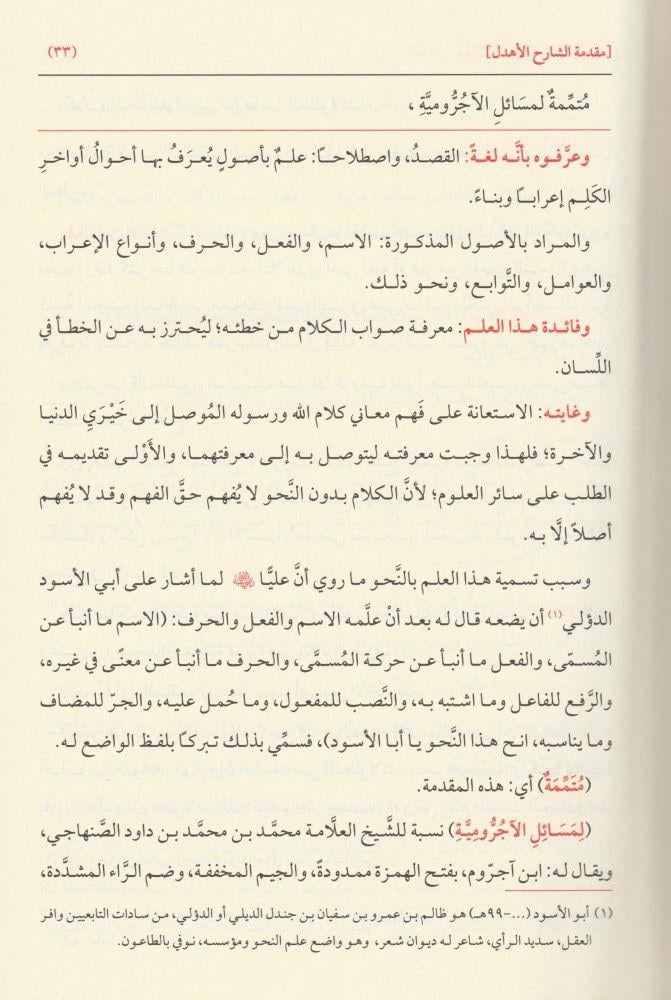 [مقدمة الشارح الأهدل] (٣٣)
مُتمِّمةٌ لمسَائلِ الآجُرُّوميَّةِ ،
وعرَّفوه بأنَّه لغةً: القصدُ، واصطلاحًا: علمٌ بأصولٍ يُعرَفُ بها أحوالُ أواخرِ
الكَلِم إعرابًا وبناءً.
والمراد بالأصول المذكورة: الاسم، والفعل، والحرف، وأنواع الإعراب،
والعوامل، والتَّوابع، ونحو ذلك.
وفائدة هذا العلم: معرفة صواب الكلام من خطئه؛ ليُحترز به عن الخطأ في
اللِّسان.
وغايته: الاستعانة على فَهم معاني كلام الله ورسوله المُوصل إلى خَيْرَيِ الدنيا
والآخرة؛ فلهذا وجبت معرفته ليتوصل به إلى معرفتهما، والأَوْلى تقديمه في
الطلب على سائر العلوم؛ لأنَّ الكلام بدون النَّحو لا يُفهم حقَّ الفهم وقد لا يُفهم
أصلاً إلَّا به.
وسبب تسمية هذا العلم بالنَّحو ما روي أنَّ عليًّا لما أشار على أبي الأسود
الدؤلي(١) أن يضعه قال له بعد أنْ علَّمه الاسم والفعل والحرف: (الاسم ما أنبأ عن
المُسمّى، والفعل ما أنبأ عن حركة المسمَّى، والحرف ما أنبأ عن معنًى في غيره،
والرَّفع للفاعل وما اشتبه به، والنَّصب للمفعول، وما حُمل عليه، والجرّ للمضاف
وما يناسبه، انح هذا النَّحو يا أبا الأسود)، فسمِّي بذلك تبركًا بلفظ الواضع له.
(مُتَمِّمَةٌ) أي: هذه المقدمة.
(لِمَسَائِلِ الآجُرُّومِيَّةِ) نسبة للشَّيخ العلَّامة محمَّد بن محمَّد بن داود الصَّنهاجي،
ويقال له: ابن آجرّوم، بفتح الهمزة ممدودةً، والجيم المخففة، وضم الرَّاء المشدَّدة،
(١) أبو الأسود (...-٩٩هـ) هو ظالم بن عمرو بن سفيان بن جندل الديلي أو الدؤلي، من سادات التابعيين وافر
العقل، سديد الرأي، شاعر له ديوان شعر، وهو واضع علم النحو ومؤسسه، توفي بالطاعون.